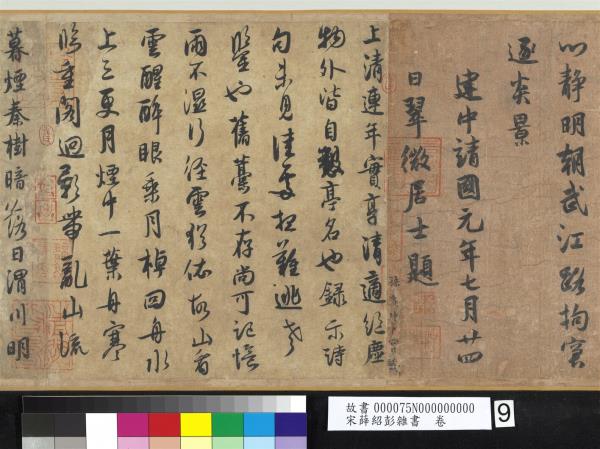 以靜明朝武江路拘窘
逐炎景
建中靖國元年七月廿四
日翠微居士題
上清連年實享清適絕塵
物外諧自 亭名也錄示詩
句未見佳處 難逃
鑒也舊藁不存尚可記憶
雨不濕行徑雲猶依故山看
雲醒醉眼乘月棹回舟水
上三更月煙中一葉舟寒
臨重閣迥影帶亂山流
暮煙秦樹暗落日渭川明
故書 000075N000000000
宋薛紹彭雜書 卷
9